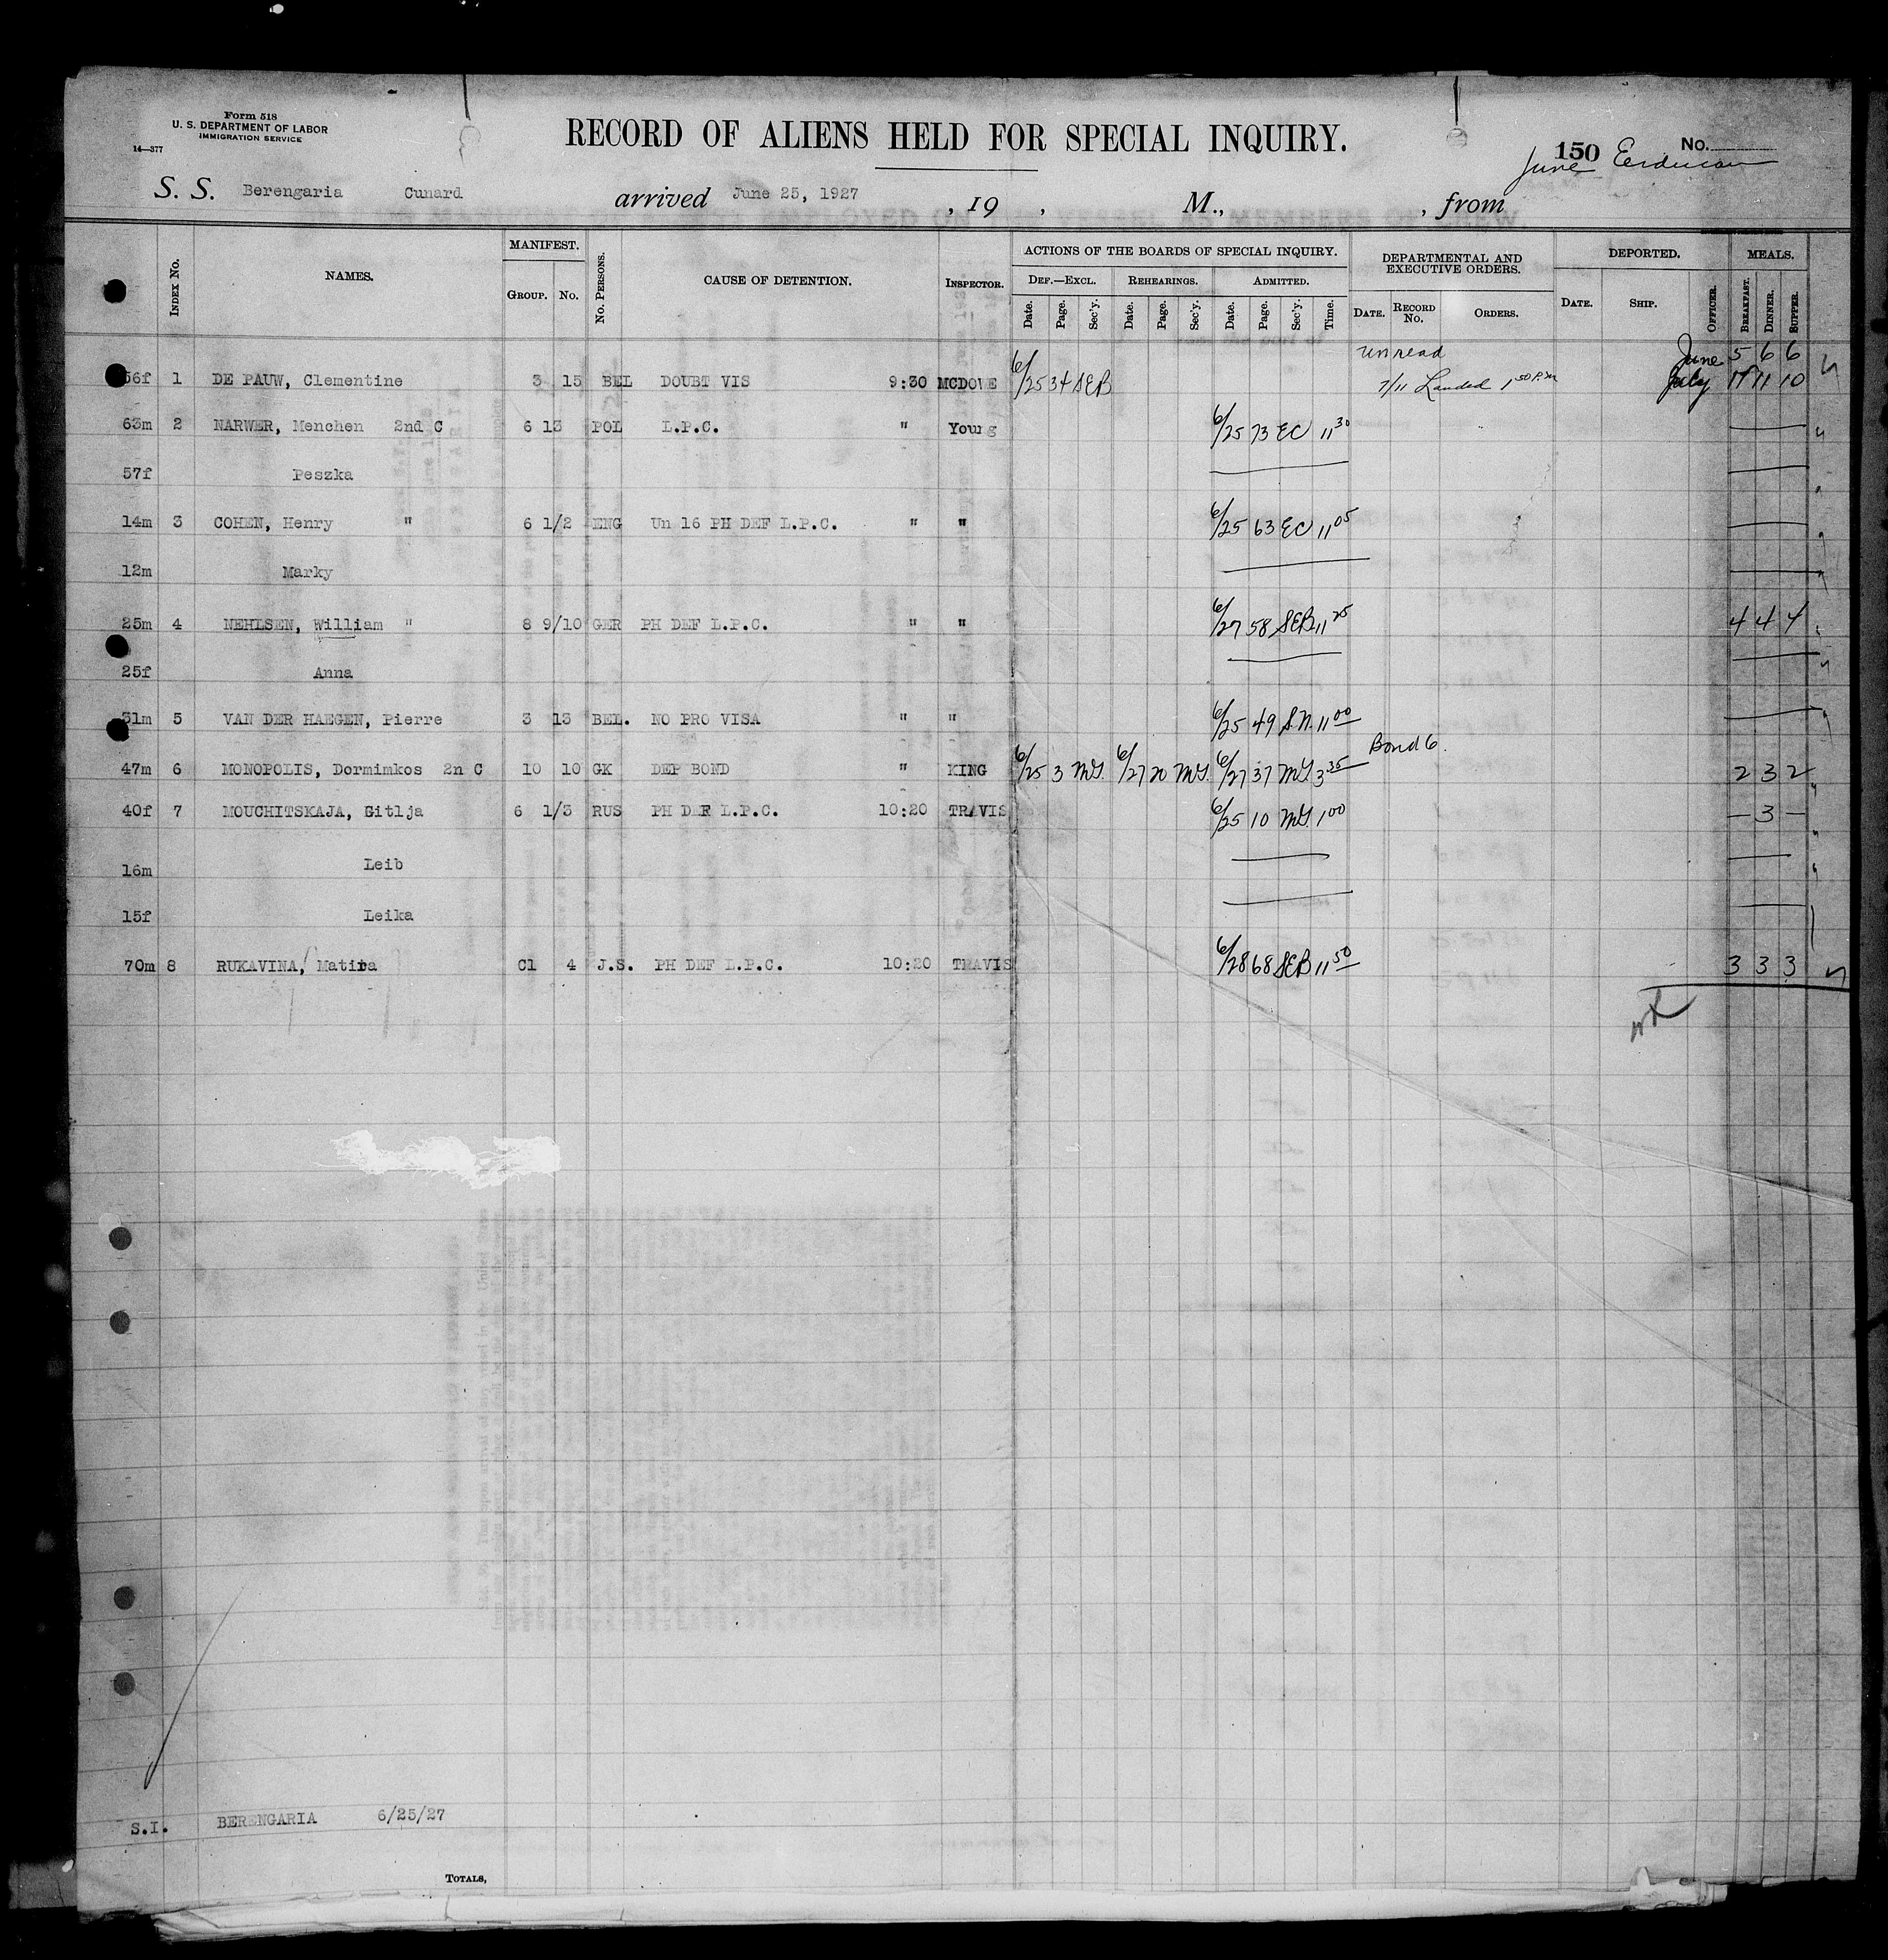 Form 518
U. S. DEPARTMENT OF LABOR
IMMIGRATION SERVICE
14—377
RECORD OF ALIENS HELD FOR SPECIAL INQUIRY.
150 No.
June
S. S. Berengaria Cunard arrived June 25, 1927, 19 , M., , from
INDEX No. NAMES. MANIFEST. GROUP. No. No. PERSONS. CAUSE OF DETENTION. INSPECTOR. ACTIONS OF THE BOARDS OF SPECIAL INQUIRY. DEF.—EXCL. Date. Page. Sec'y. REHEARINGS. Date. Page. Sec'y. ADMITTED. Date. Page. Sec'y. Time. DEPARTMENTAL AND EXECUTIVE ORDERS. DATE. RECORD No. ORDERS. DEPORTED. DATE. SHIP. OFFICER. MEALS. BREAKFAST. DINNER. SUPPER.
unread June 5 6 6
56f 1 DE PAUW, Clementine 3 15 BEL DOUBT VIS 9:30 MCDOVE 6/25 34 SEB 7/11 Landed 1 50 P.M July 11 11 10
63m 2 NARWER, Menchen 2nd C 6 13 POL L.P.C. " Young 6/25 73 EC 11 30
57f Peszka
14m 3 COHEN, Henry " 6 1/2 ENG Un 16 PH DEF L.P.C. " " 6/25 63 EC 11 05
12m Marky
25m 4 NEHLSEN, William " 8 9/10 GER PH DEF L.P.C. " " 6/27 58 SEB 11 25 4 4 4
25f Anna
31m 5 VAN DER HAEGEN, Pierre 3 13 BEL. NO PRO VISA " " 6/25 49 S.N. 11 00
Bond 6.
47m 6 MONOPOLIS, Dormimkos 2n C 10 10 GK DEP BOND " KING 6/25 3 MG. 6/27 20 MG. 6/27 37 MG 3 35 2 3 2
40f 7 MOUCHITSKAJA, Gitlja 6 1/3 RUS PH DEF L.P.C. 10:20 TRAVIS 6/25 10 MG. 1 00 — 3 —
16m Leib
15f Leika
70m 8 RUKAVINA, Matira C1 4 J.S. PH DEF L.P.C. 10:20 TRAVIS 6/28 68 SEB 11 50 3 3 3
S.I. BERENGARIA 6/25/27
TOTALS,